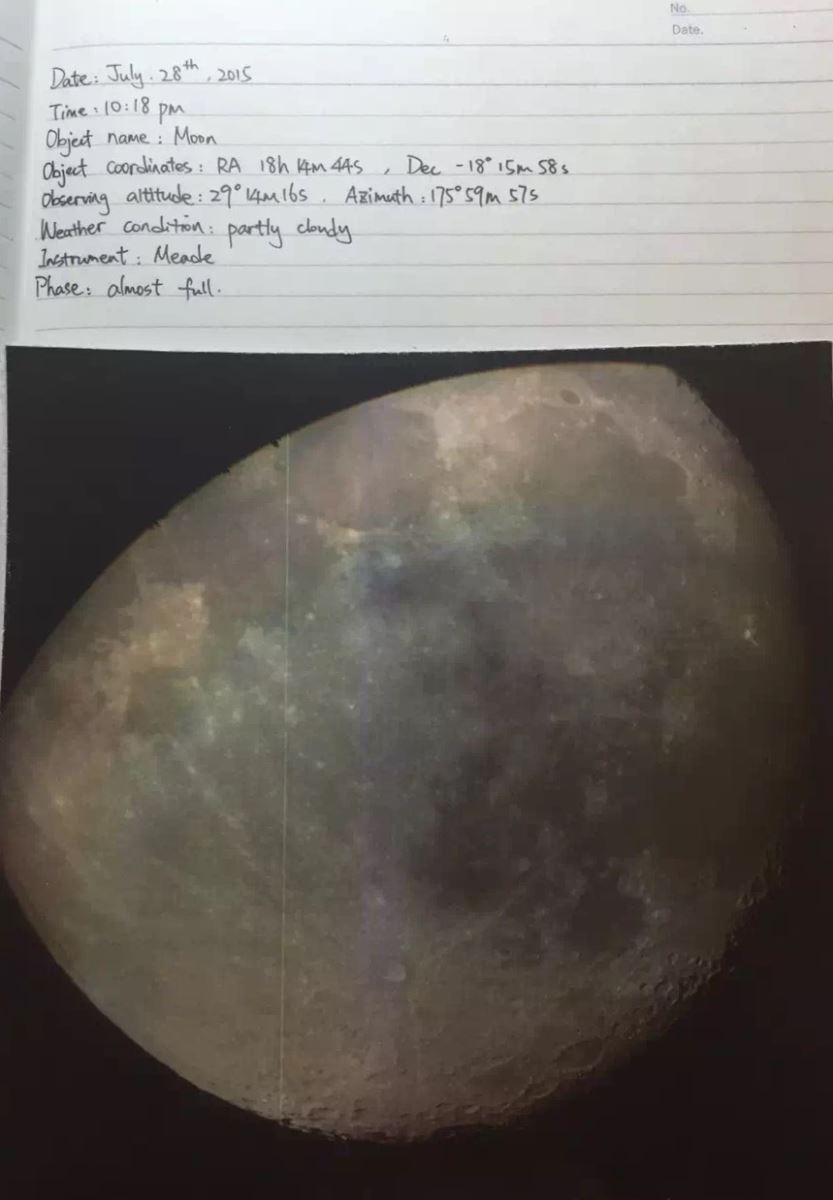 No.
Date.
Date: July. 28th, 2015
Time: 10:18 pm
Object name: Moon
Object coordinates: RA 18h 14m 44s , Dec -18° 15m 58s
Observing altitude: 29° 14m 16s . Azimuth: 175° 59m 57s
Weather condition: partly cloudy
Instrument: Meade
Phase: almost full.